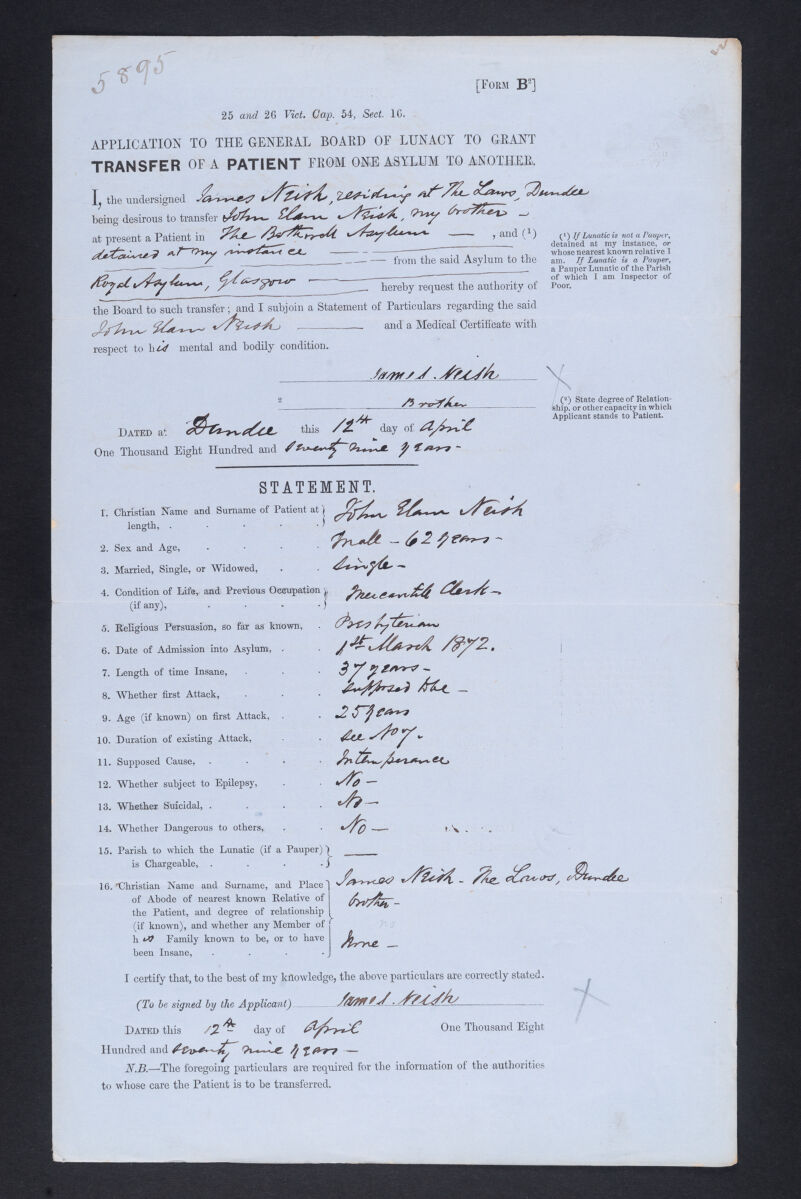 5895
[FORM B²]
25 and 26 Vict. Cap. 54, Sect. 16.
APPLICATION TO THE GENERAL BOARD OF LUNACY TO GRANT
TRANSFER OF A PATIENT FROM ONE ASYLUM TO ANOTHER.
I, the undersigned James Neish, residing at The Laws, Dundee
being desirous to transfer John Elam Neish, my brother –
at present a Patient in The Bothwell Asylum — , and (¹)
detained at my instance — from the said Asylum to the
Royal Asylum, Glasgow — hereby request the authority of
the Board to such transfer; and I subjoin a Statement of Particulars regarding the said
John Elam Neish — and a Medical Certificate with
respect to his mental and bodily condition.
(¹) If Lunatic is not a Pauper,
detained at my instance, or
whose nearest known relative I
am. If Lunatic is a Pauper,
a Pauper Lunatic of the Parish
of which I am Inspector of
Poor.
James. Neish
² Brother
(²) State degree of Relation-
ship, or other capacity in which
Applicant stands to Patient.
DATED at Dundee this 12th day of April
One Thousand Eight Hundred and seventy nine years –
STATEMENT.
1. Christian Name and Surname of Patient at length, . John Elam Neish
2. Sex and Age, Male – 62 years –
3. Married, Single, or Widowed, Single –
4. Condition of Life, and Previous Occupation (if any), Mercantile Clerk –
5. Religious Persuasion, so far as known, . Presbyterian
6. Date of Admission into Asylum, . 1st March 1872.
7. Length of time Insane, 37 years –
8. Whether first Attack, supposed to be –
9. Age (if known) on first Attack, . 25 years
10. Duration of existing Attack, see No 7.
11. Supposed Cause, . Intemperance
12. Whether subject to Epilepsy, No –
13. Whether Suicidal, . No –
14. Whether Dangerous to others, No –
15. Parish to which the Lunatic (if a Pauper) is Chargeable, . —
16. Christian Name and Surname, and Place James Neish – The Laws, Dundee
of Abode of nearest known Relative of brother –
the Patient, and degree of relationship
(if known), and whether any Member of
his Family known to be, or to have None –
been Insane,
I certify that, to the best of my knowledge, the above particulars are correctly stated.
(To be signed by the Applicant) James. Neish
DATED this 12th day of April One Thousand Eight
Hundred and seventy nine years –
N.B.—The foregoing particulars are required for the information of the authorities
to whose care the Patient is to be transferred.